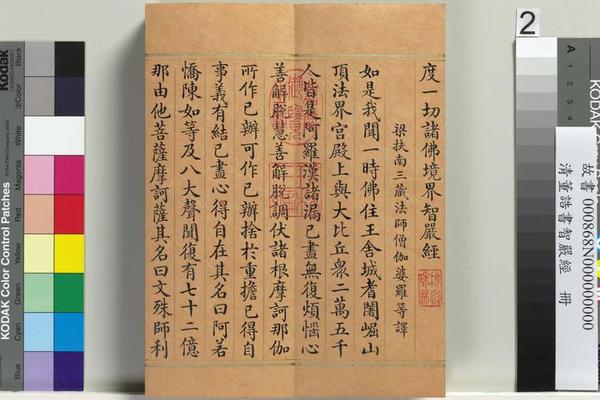 度一切諸佛境界智嚴經
梁扶南三藏法師僧伽婆羅等譯
如是我聞一時佛住王舍城耆闍崛山
頂法界宮殿上與大比丘眾二萬五千
人皆是阿羅漢諸漏已盡無復煩惱心
善解脫慧善解脫調伏諸根摩訶那伽
所作已辦可作已辦捨於重擔已得自
事義有結已盡心得自在其名曰阿若
憍陳如等及八大聲聞復有七十二億
那由他菩薩摩訶薩其名曰文殊師利
2
A
1
2
3
4
故書 000868N000000000
清董誥書智嚴經 冊
Kodak
KODAK Color Control Patches
Black
3/Color
White
Magenta
Red
Yellow
Green
Cyan
Blue